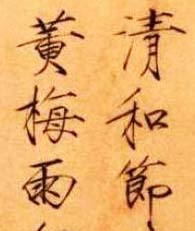 清和節
黃梅雨